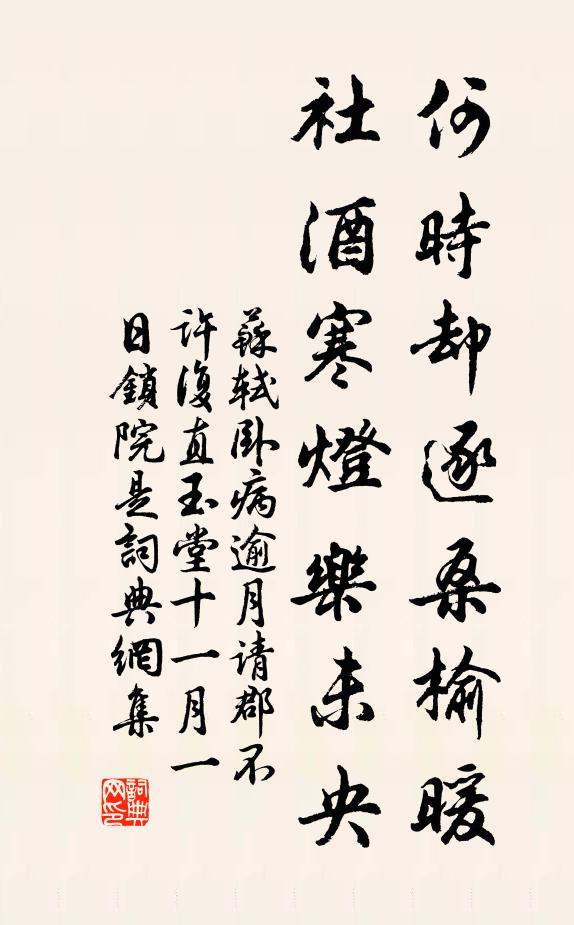 何時却逐桑榆暖
社酒寒燈樂未央
蘇軾卧病逾月请郡不
許復直玉堂十一月一
日鎖院是詞典網集
詞典网印